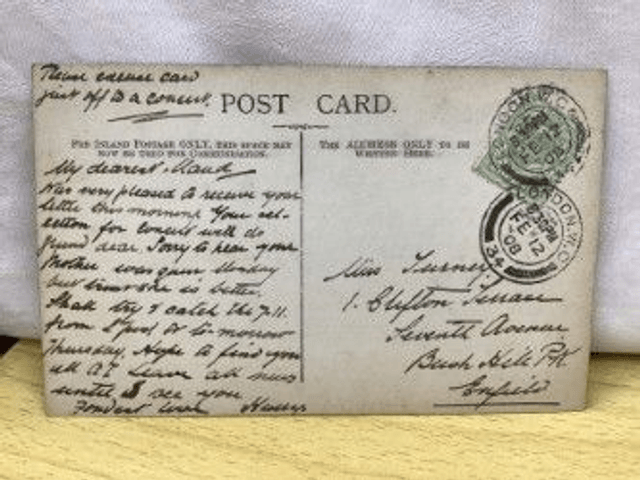 Please excuse card
just off to a concert.
POST CARD.
FOR INLAND POSTAGE ONLY, THIS SPACE MAY
NOW BE USED FOR CORRESPONDENCE.
THE ADDRESS ONLY TO BE
WRITTEN HERE.
My dearest Maud
Was very pleased to receive your
letter this morning Your sel-
ection for concert will do
grand dear Sorry to hear your
Mother was Monday
but she is better.
Shall try & catch the 7.11.
from L'pool St to-morrow
Thursday, Hope to find you
all A.1. Leave all news
until I see you
Fondest love Harry
LONDON. W.C.
LONDON. W.C.
9.30PM
FE 12
08
34
Miss Turney
1. Clifton Terrace
Seventh Avenue
Bush Hill Pk
Enfield